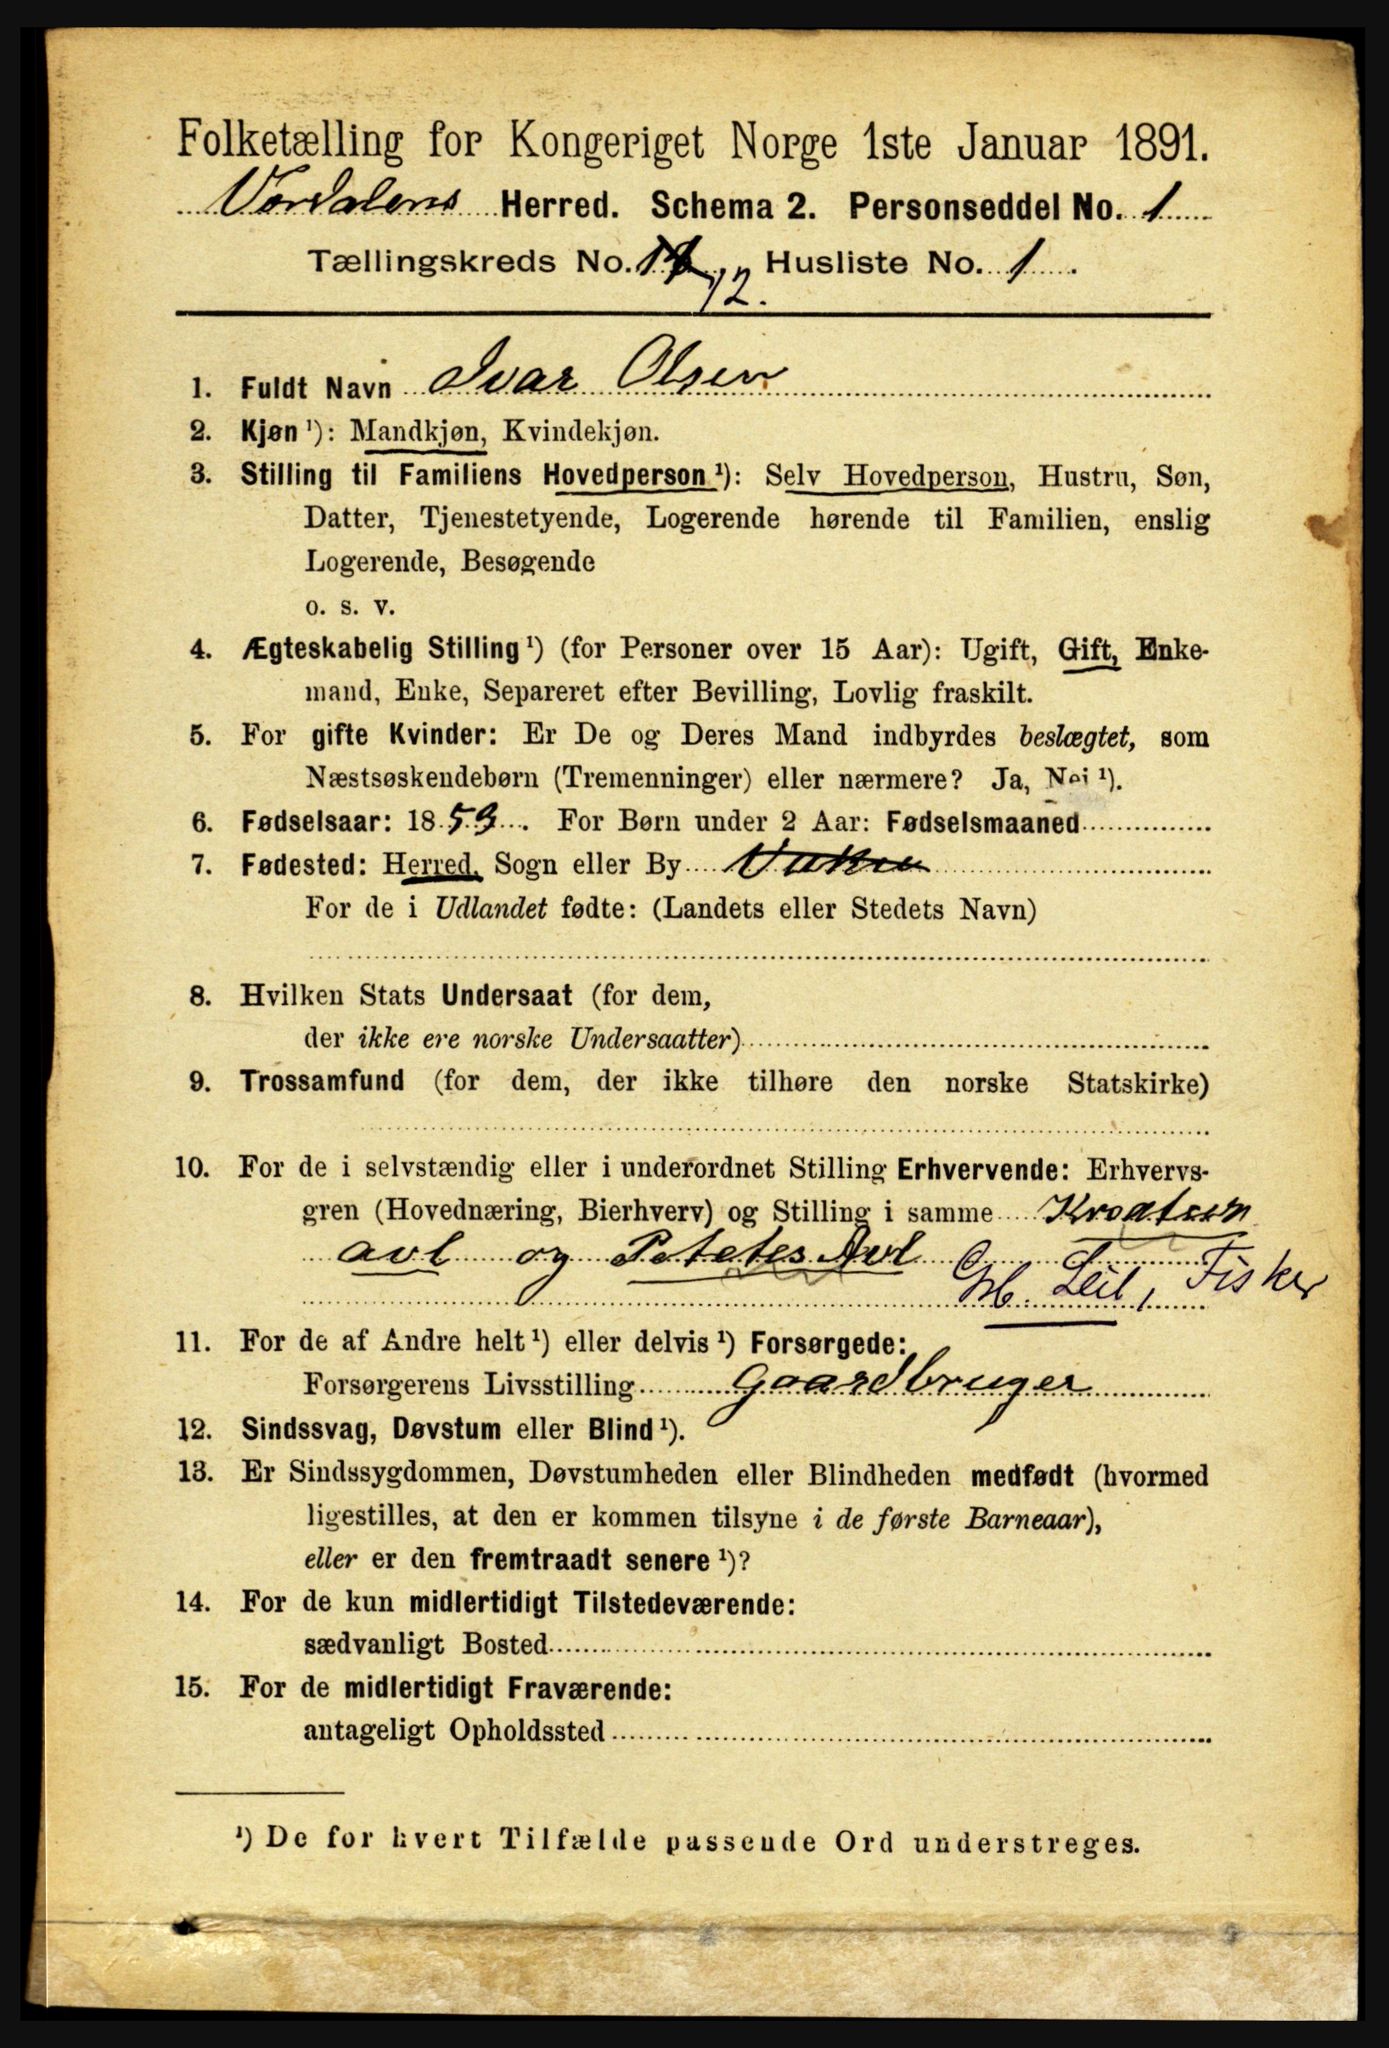 Folketælling for Kongeriget Norge 1ste Januar 1891.
Herred. Schema 2. Personseddel No. 1
Tællingskreds No. 12. Husliste No. 1.
1. Fuldt Navn Ivar Olsen
2. Kjøn ¹): Mandkjøn, Kvindekjøn.
3. Stilling til Familiens Hovedperson ¹): Selv Hovedperson, Hustru, Søn,
Datter, Tjenestetyende, Logerende hørende til Familien, enslig
Logerende, Besøgende
o. s. v.
4. Ægteskabelig Stilling ¹) (for Personer over 15 Aar): Ugift, Gift, Enke-
mand, Enke, Separeret efter Bevilling, Lovlig fraskilt.
5. For gifte Kvinder: Er De og Deres Mand indbyrdes beslægtet, som
Næstsøskendebørn (Tremenninger) eller nærmere? Ja, Nei ¹).
6. Fødselsaar: 1853. For Børn under 2 Aar: Fødselsmaaned
7. Fødested: Herred, Sogn eller By
For de i Udlandet fødte: (Landets eller Stedets Navn)
8. Hvilken Stats Undersaat (for dem,
der ikke ere norske Undersaatter)
9. Trossamfund (for dem, der ikke tilhøre den norske Statskirke)
10. For de i selvstændig eller i underordnet Stilling Erhvervende: Erhvervs-
gren (Hovednæring, Bierhverv) og Stilling i samme
avl og Potetes Avl
Leil, Fisker
11. For de af Andre helt ¹) eller delvis ¹) Forsørgede:
Forsørgerens Livsstilling Gaardbruger
12. Sindssvag, Døvstum eller Blind ¹).
13. Er Sindssygdommen, Døvstumheden eller Blindheden medfødt (hvormed
ligestilles, at den er kommen tilsyne i de første Barneaar),
eller er den fremtraadt senere ¹)?
14. For de kun midlertidigt Tilstedeværende:
sædvanligt Bosted
15. For de midlertidigt Fraværende:
antageligt Opholdssted
¹) De for hvert Tilfælde passende Ord understreges.